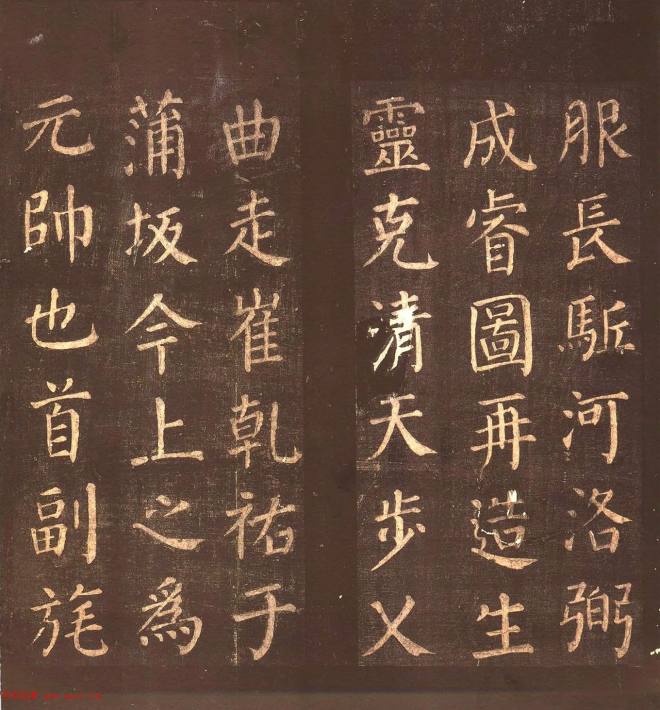 服長駈河洛弼
成睿圖再造生
靈克清天步乂
曲走崔乾祐于
蒲坂今上之為
元帥也首副旄